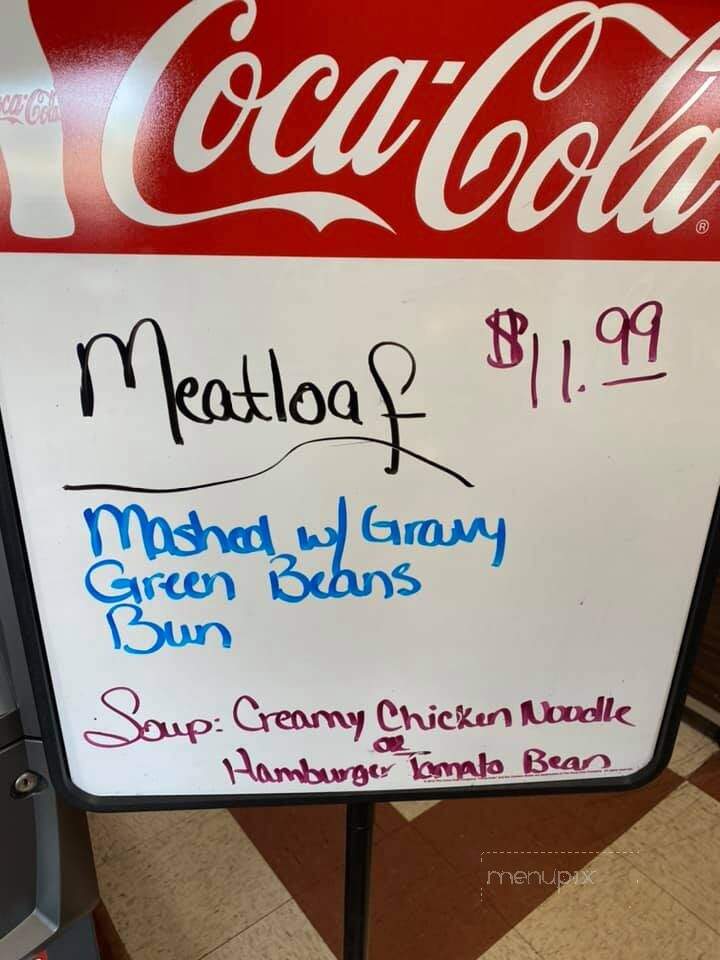 Coca-Cola
Coca-Cola
®
Meatloaf $11.99
Mashed w/ Gravy
Green Beans
Bun
Soup: Creamy Chicken Noodle
or
Hamburger Tomato Bean
menupix